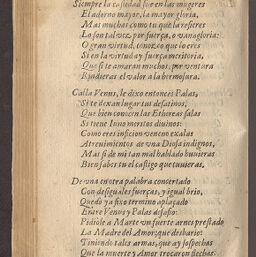 Siempre la castidad fue en las mugeres
El adorno mayor, la mayor gloria,
Mas muchas como tu que la refieres
La son tal vez, por fuerça, o vanagloria:
O gran virtud, conozco que lo eres
Si en la virtud ay fuerça meritoria,
Que si te amaran muchos, por ventura
Rindieras el valor a la hermosura.
Calla Venus, le dixo entonces Palas,
Si te dexan lugar tus desatinos,
Que bien conocen las Ethereas salas
Si tiene Iuno meritos diuinos:
Como eres infición veneno exalas
Atreuimientos de vna Diosa indignos,
Mas si de mi tan mal hablado huuieras
Bien sabes tu el castigo que tuuieras,
De vna en otra palabra concertado
Con desiguales fuerças, y igual brio,
Quedò ya fixo termino aplaçado
Entre Venus y Palas desafio:
Pidiole a Marte vn fuerte arnes prestado
La Madre del Amor, que desbario:
Tiniendo tales armas, que ay sospechas
Que la muerte y Amor trocaron flechas.